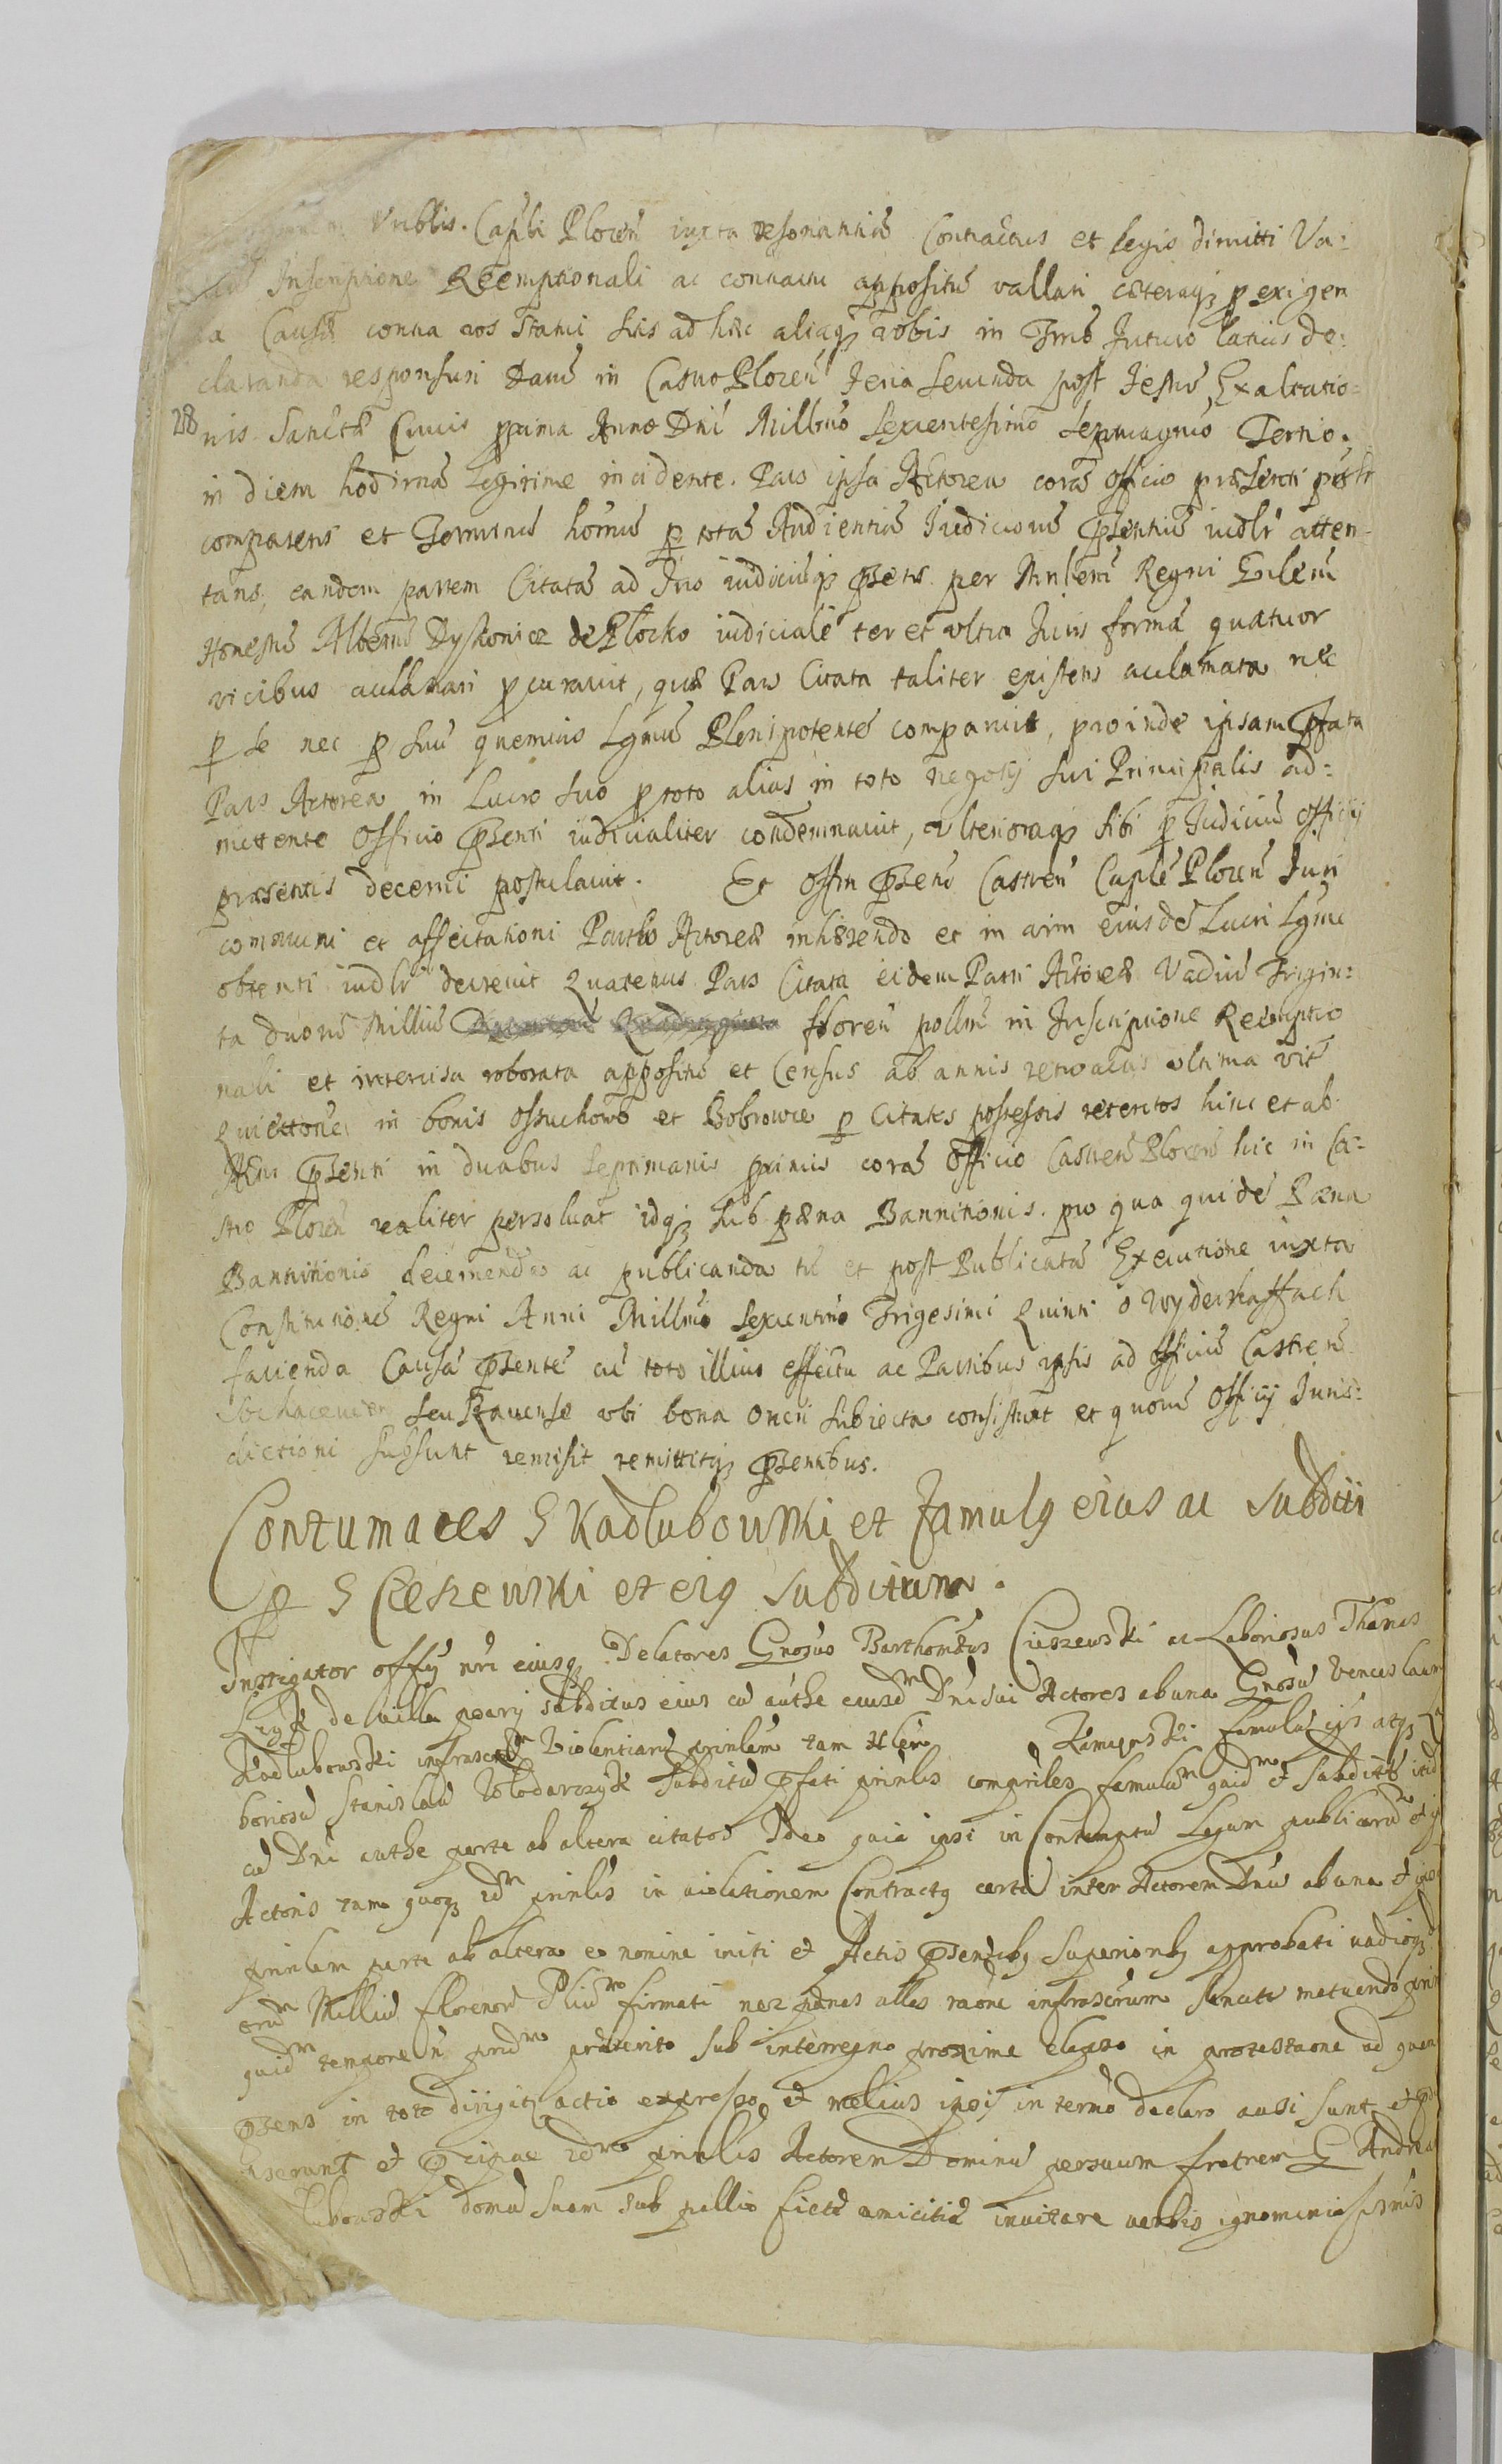 vrblis. Capbi Plocen iuxta resonantiã Contractus et legis dimitti Va:
Inscriptione Reemptionali ac contractu appositũ vallari cæteraqȝ p exigen
a Causæ contra vos Statui suis ad hæc aliaqȝ vobis in Trmõ Futuro latius de:
claranda responsuri Datũ in Castro Plocen Feria Secunda post Festũ Exaltatio:
nis Sanctæ Crucis prima Anno Dni Millmo Sexcentesimo Septuagmo Tertio.
in diem hodiernã legitime incidente. Pars ipsa Actorea corã officio præsenti
comparens et Terminũ hornũ p totã Audientiã Iudiciorũ Psentiũ iudlr atten-
tans, eandem partem Citatã ad Ius iudiciũqȝ Psens per Mnlem Regni Gnlem
Honestũ Albertũ Dyskonicz de Plocko iudicialr ter et ultra Iuris formã quatuor
vicibus acclamari pcuravit, quæ Pars Citata taliter existens acclamata nec
p se nec p suũ quemvis Lgmũ Plenipotentẽ comparuit, proinde ipsam Pfata
Pars Actorea in Lucro suo p toto alias in toto negotij sui Principalis ad:
mittente officio Psenti iudicialiter condemnavit, ulterioraqȝ sibi p Iudiciũ officij
præsentis decerni postulavit. Et offm Psens Castren Caple Plocen Iuri
communi et affectationi Partis Actoreæ inhærendo et in vim eiusdẽ Lucri Lgme
obtenti iudlr decrevit Quatenus Pars Citata eidem Parti Actoreæ Vadiũ Trigin:
ta duorũ Milliũ fflorenũ pollium in Inscriptione Reemptio
nali et intercisa roborata appositũ et Census ab annis retroactis ultima vit
Quiettone in bonis Ossuchowo et Bobrowce p Citatos possessos retentos hinc et ab
Actu Psenti in duabus Septimanis proximis corã Officio Castren Plocen hic in Ca:
stro Plocen realiter persoluat idqȝ sub pæna Bannitionis. pro qua quidẽ Pæna
Bannitionis decernenda ac publicanda tũ et post Publicatã Executione iuxta
Constitutionẽ Regni Anni Millmo Sexcentmo Trigesimi Quinti o Wyderkaffach
facienda Causã Psentẽ cũ toto illius effectu ac Partibus ipsis ad officiũ Castren
Sochaceuien seu Rauense vbi bona oneri subiecta consistunt et quorũ Officij Iuris:
dictioni subsunt remisit remittitqȝ Psentibus.
Contumaces G Kadlubowski et famulg eius ac subditi
p G Cieszewski et eig subditum.
Instigator officij nri eiusqȝ Delatores Gnosus Bartholomeus Cieszewski ac Laboriosus Thomas
de villa subditus eius cũ authe eiusdm Dni sui Actores ab una Gnosũ Venceslaum
Kadlubowski infrascrm Violentiarũ prinlem tam Nlem Kempski famulũ eius atqȝ La
boriosũ Stanislaũ Wlodarczyk subditũ Pfati prinlis compriles famulũ quidm et subditũ itid
cũ Dni authe parte ab altera citatos Ideo quia ipsi in Contemptũ Legum publicarũ et
Actoris tam quoqȝ idm prinlis in violationem Contractg certi inter Actorem Dnũ ab una et ipsũ
prinlem parte ab altera eo nomine initi et Actis Psentibg Superioribg approbati vadioqȝ
Milliũ florenorũ Plium firmati nec pænas alles raõne infrascrorum sancitas metuendo prin
quidm tempore ñ pridm præterito sub interregno proxime elapso in protestaone ad quam
Psens in toto dirigitr actio expresso et melius ipsis in termõ declaro ausi sunt et
serunt et Pcipue idm prinlis Actorem Dominũ per suum fratrem G Andream
lubowski domũ suam sub pallio fictæ amicitiæ invitare verbis ignominiosissimis